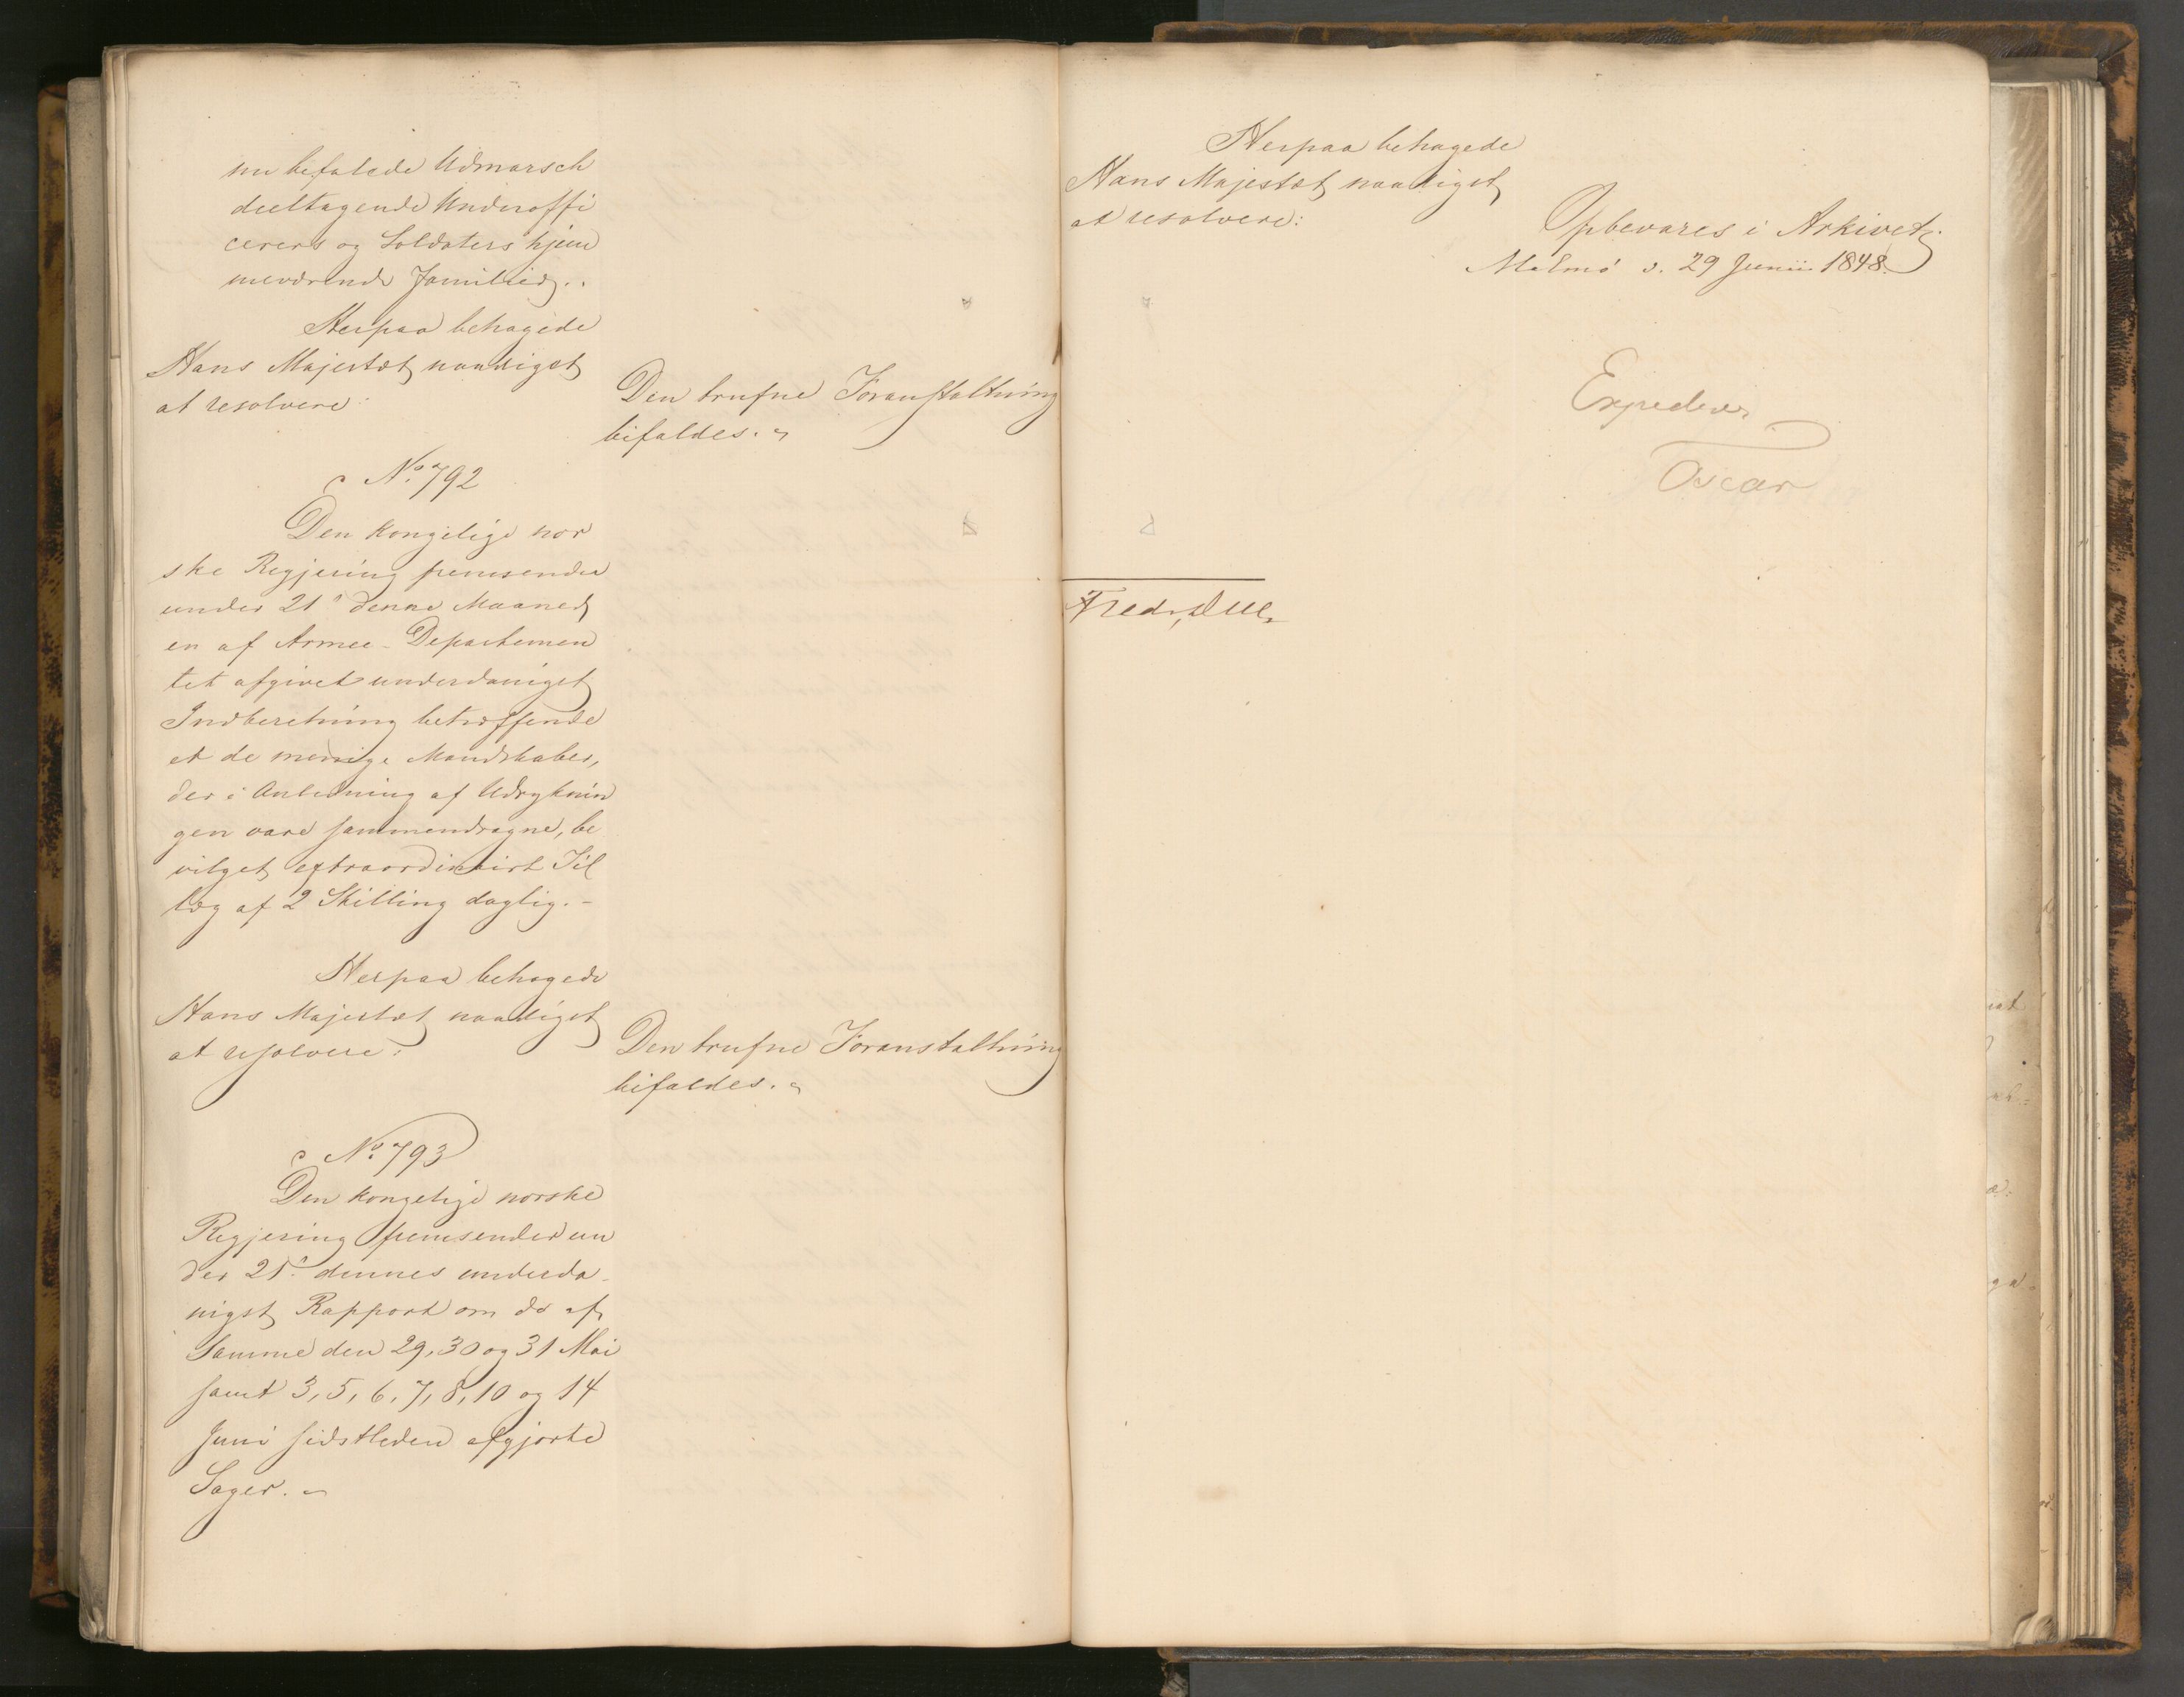 nu befalede Udmarsch
deeltagende Underoffi
cerers og Soldaters hjem
meværende Familier.
Herpaa behagede
Hans Majestæt naadigst
at resolvere:
Den trufne Foranstaltning
bifaldes.
No. 792
Den kongelige nor
ske Regjering fremsender
under 21de denne Maaned
en af Armee-Departemen
tet afgivet underdanigst
Indberetning betræffende
et de menige Mandskaber,
der i Anledning af Udryknin
gen vare sammendragne, be
vilget extraordinairt Til
læg af 2 Skilling daglig.-
Herpaa behagede
Hans Majestæt naadigst
at resolvere:
Den trufne Foranstaltning
bifaldes.
No. 793
Den kongelige norske
Regjering fremsender un
der 21de dennes underda-
nigst Rapport om de af
samme den 29, 30 og 31 Mai
samt 3, 5, 6, 7, 8, 10 og 14
Juni sidstleden afgjorte
Sager.
Herpaa behagede
Hans Majestæt naadigst
at resolvere:
Opbevares i Arkivet.
Malmö d. 29 Junii 1848.
Expederes
Oscar
Fredr. Due